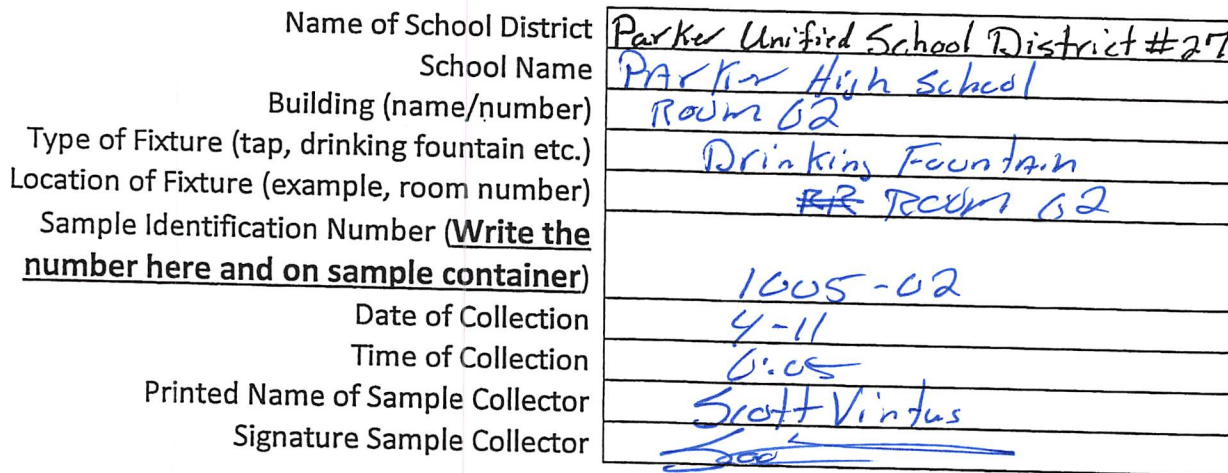 Name of School District Parker Unified School District #27
School Name PArker High School
Building (name/number) Room 02
Type of Fixture (tap, drinking fountain etc.) Drinking Fountain
Location of Fixture (example, room number) RR Room 02
Sample Identification Number (Write the
number here and on sample container) 1005-02
Date of Collection 4-11
Time of Collection 6:05
Printed Name of Sample Collector Scott Vintus
Signature Sample Collector